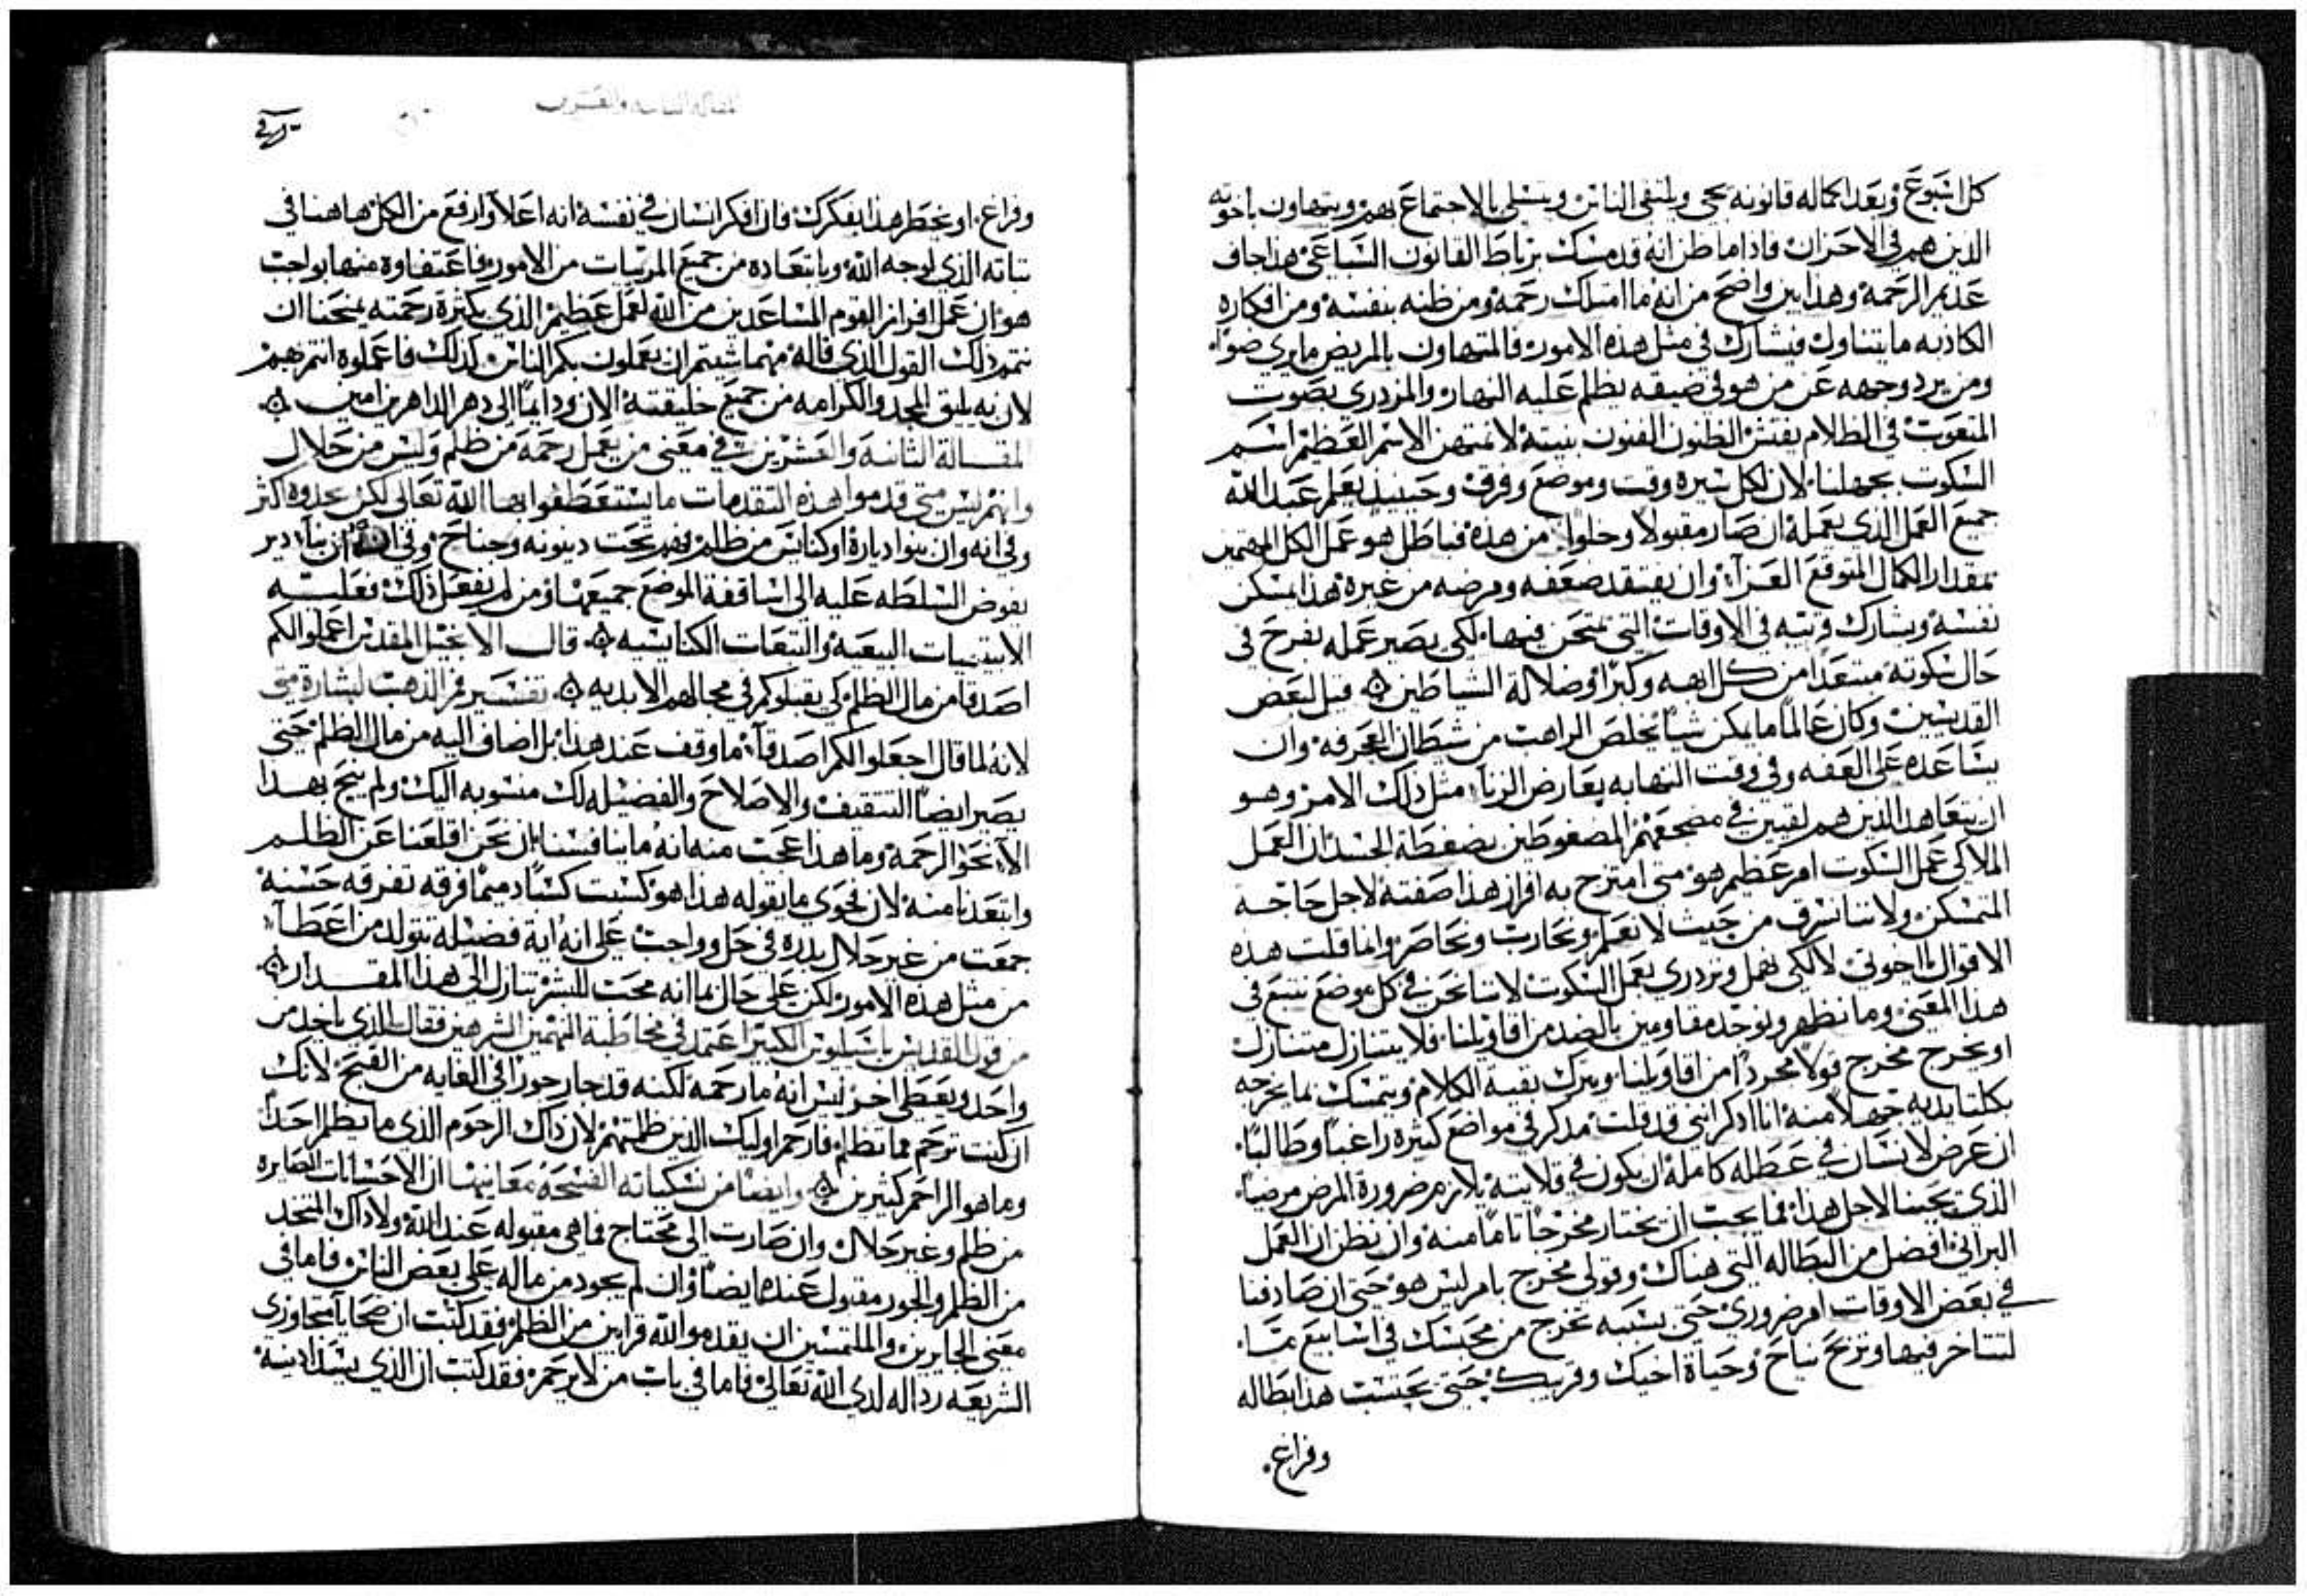 كل اسبوع وبعد اكماله قانونه يجي ويلتقي الناس ويتسلى بالاجتماع بهم ويتهاون باخوته
الذين هم في الاحزان فاذا ما ظن انه قد مسك برباط القانون السباعي هذا جاف
عديم الرحمه وهذا بين واضح من انه ما امتلك رحمه ومن ظنه بنفسه ومن افكاره
الكاذبه ما يتناول فيشارك في مثل هذه الامور فالمتهاون بالمريض ما يري ضوًا
ومن يرد وجهه عن من هو في ضيقه يظلم عليه النهار والمزدري بصوت
المتعوب في الظلام يفتش الظنون الفنون بنيته لا نمتهن الاسم العظيم اسم
السكوت بجهلنا لان لكل سيره وقت وموضع وفرق وحينيذ يعلم عبد الله
جميع العمل الذي يعمله ان صار مقبولا وخلوا من هذه فباطل هو عمل الكل المهتمين
بمقدار الكمال المتوقع العزاء وان يفتقد ضعفه ومرضه من غيره هذا يسكن
نفسه ويشارك قريبه في الاوقات التي يمتحن فيها لكي يصير عمله بفرح في
حال سكوته مبتعدًا من كل ابهه وكبرًا وضلالة الشياطين ۞ قيل لبعض
القديسين وكان عالمًا ما يمكن شيًا يخلص الراهب من شيطان العجرفه وان
يساعده على العفه وفي وقت التهابه يعارض الزنا مثل ذلك الامر وهو
ان يتعاهد الذين هم لقيين في مضجعهم المضغوطين بضغطة الجسد ان العمل
الملاكي عمل السكوت امر عظيم هو متى امتزج به افراز هذا صفته لاجل حاجة
المتمسكن ولاننا نسرق من حيث لا نعلم ونحارب ونحاصر وانما قلت هذه
الاقوال يا اخوتي لا لكي نهمل ونزدري بعمل السكوت لاننا نحن في كل موضع نتبع في
هذا المعنى وما نظهر ونوجد مقاومين بالضد من اقاويلنا فلا يتنازل متنازل
او يخرج مخرج قولا مجردًا من اقاويلنا ويترك بقية الكلام ويتمسك بما يخرجه
بكلتا يديه جهلا منه انا اذكر انني قد قلت مذكر في مواضع كثيره راغبًا وطالبًا
ان عرض لانسان في عطله كامله ان يكون في قلايته يلازم ضرورة المرض مرضيا
الذي يحبنا لاجل هذا فما يجب ان يختار مخرجًا تامًا منه وان نظن ان العمل
البراني افضل من البطاله التي هناك وقولي مخرج تام ليس هو حتى ان صادفنا
في بعض الاوقات امر ضروري حتى بسببه تخرج من محبسك في اسابيع مّا
لتتاخر فيها وتربح نياح وحياة اخيك وقريبك حتى تحتسب هذا بطاله
وفراغ
المقاله الثانيه والعشرين
وفراغ او يخطر هذا بفكرك فان افتكر انسان في نفسه انه اعلا وارفع من الكل هاهنا في
ثباته الذي لوجه الله وبابتعاده من جميع المرتبات من الامور فاعتفاوه منها بواجب
هو ان عمل افراز القوم المساعدين من الله لعمل عظيم الذي بكثرة رحمته يمنحنا ان
نتمم ذلك القول الذي قاله مهما شيتم ان يعملون بكم الناس كذلك فاعملوه انتم بهم
لان به يليق المجد والكرامه من جميع خليقته الان ودايمًا الى دهر الداهرين امين ۞
المقالة الثانيه والعشرين في معنى من يعمل رحمه من ظلم وليس من حلال
وانهم ليس متى قدموا هذه التقدمات ما يستعطفوا بها الله تعالى لكن يحدوه اكثر
وفي انه وان بنوا ديارة او كنايس من ظلم فهم تحت دينونه وجناح وفي ان بناء دير
يفوض السلطه عليه الى اساقفة الموضع جميعها ومن لم يفعل ذلك فعليه
الابيتيميات البيعيه والتبعات الكنايسيه ۞ قال الانجيل المقدس اعملوا لكم
اصدقا من مال الظلم كي يقبلوكم في مجالهم الابديه ۞ تفسير فم الذهب لبشارة متى
لانه لما قال اجعلوا لكم اصدقاء ما وقف عند هذا بل اضاف اليه من مال الظلم حتى
يصير ايضًا التثقيف والاصلاح والفضيله لك منسوبه اليك ولم ينح بهذا
الا نحو الرحمه وما هذا عجب منه انه ما ينافسنا بان نحن اقلعنا عن الظلم
وابتعدنا منه لان فحوى ما يقوله هذا هو كسبت كسبًا دميمًا فرقه تفرقه حسنه
جمعت من غير حلال بدده في حل وواجب على انه اية فضيله تتولد من اعطاء
من مثل هذه الامور لكن على حال بما انه محب للبشر تنازل الى هذا المقدار ۞
من قول القديس باسيليوس الكبير اعتمد في مخاطبة النهمين الشرهين فقال الذي ياخذ من
واحد ويعطي اخر ليس انه ما رحمه لكنه قد جار جورًا في الغايه من القبح لانك
ان كنت ترحم مما تظلم فارحم اوليك الذين ظلمتهم لان ذاك الرحوم الذي ما يظلم احدًا
وما هو الراحم كثيرين ۞ وايضًا من نسكياته الفسحه معانيها ان الاحسانات الصايره
من ظلم وغير حلال وان صارت الى محتاج فما هي مقبوله عند الله ولا ذاك المتخد
من الظلم والجور مقبول عنده ايضًا وان لم يجود من ماله على بعض الناس فاما في
معنى الجايرين والملتمسين ان يقدموا لله قرابين من الظلم فقد كتبت ان ضحايا متجاوزي
الشريعه رداله لدي الله تعالى فاما في باب من لا يرحم فقد كتب ان الذي يسد اذنيه